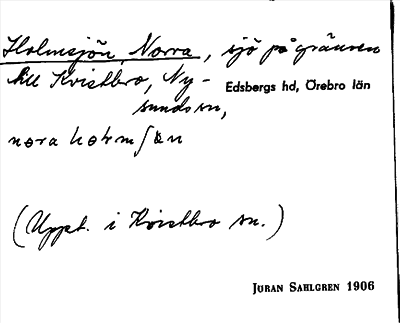 Holmsjön, Norra, sjö på gränsen
till Kvistbro, Ny-
sunds sn,
Edsbergs hd, Örebro län
nora
(Uppt. i Kvistbro sn.)
JURAN SAHLGREN 1906